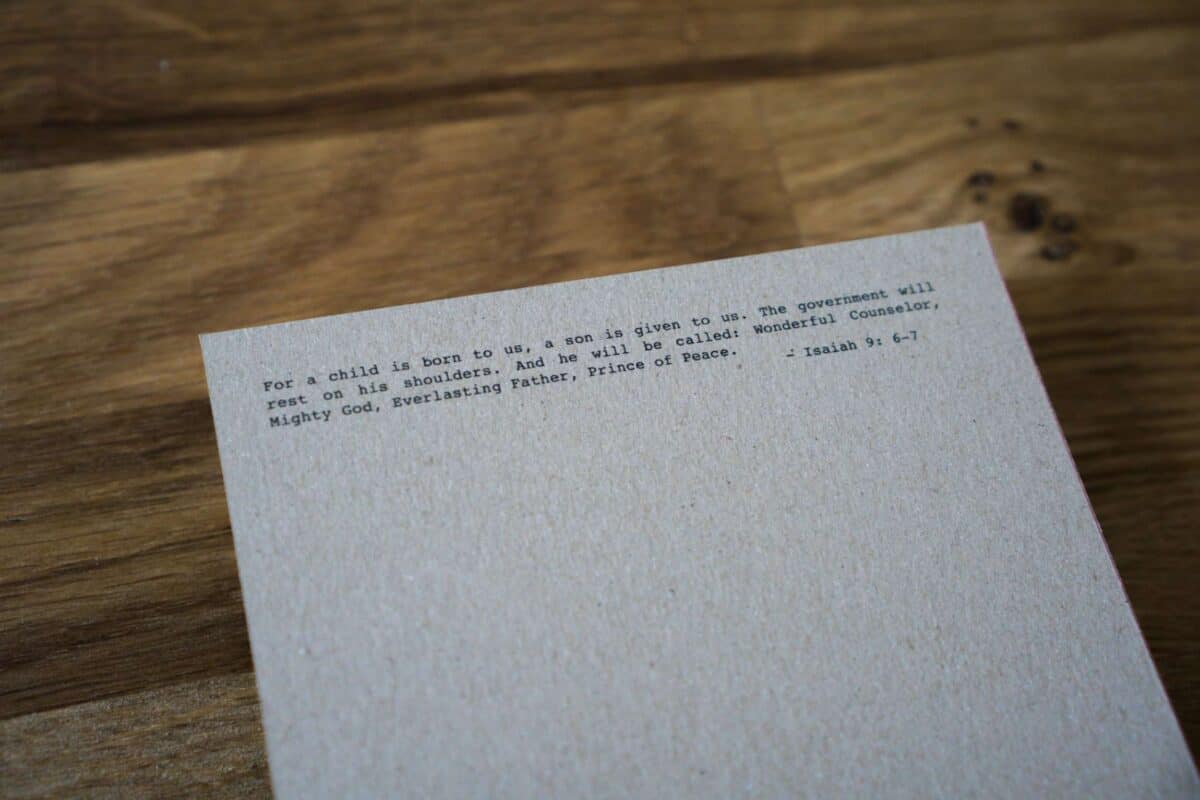 For a child is born to us, a son is given to us. The government will
rest on his shoulders. And he will be called: Wonderful Counselor,
Mighty God, Everlasting Father, Prince of Peace. – Isaiah 9: 6-7